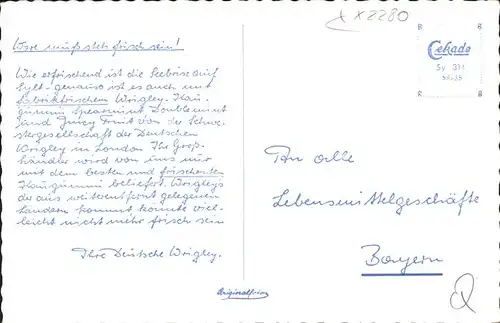 Ware muß stets frisch sein!
Wie erfrischend ist die Seebrise auf
Sylt - genauso ist es auch mit
fabrikfrischem Wrigley-Kau-
gummi Spearmint Doublemint
und Juicy Fruit von der Schwe-
stergesellschaft der Deutschen
Wrigley in London Ihr Groß-
händler wird von uns nur
mit dem besten und frischesten
Kaugummi beliefert. Wrigleys
der aus weit entfernt gelegenen
Ländern kommt könnte viel-
leicht nicht mehr frisch sein
Ihre Deutsche Wrigley.
X2280
Cekade
Sy 311
An alle
Lebensmittelgeschäfte
Bayern
Originalfoto